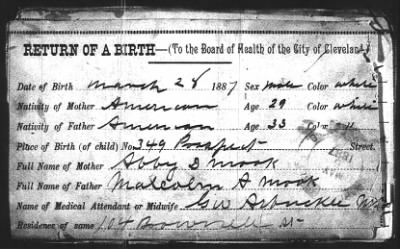 RETURN OF A BIRTH—(To the Board of Health of the City of Cleveland.)
Date of Birth march 28 1887 Sex male Color white
Nativity of Mother American Age 29 Color white
Nativity of Father American Age 33 Color
Place of Birth (of child) No. 349 Prospect Street.
Full Name of Mother Abby D mook
Full Name of Father Malcolm A mook
Name of Medical Attendant or Midwife Geo Arbuckle
Residence of same St